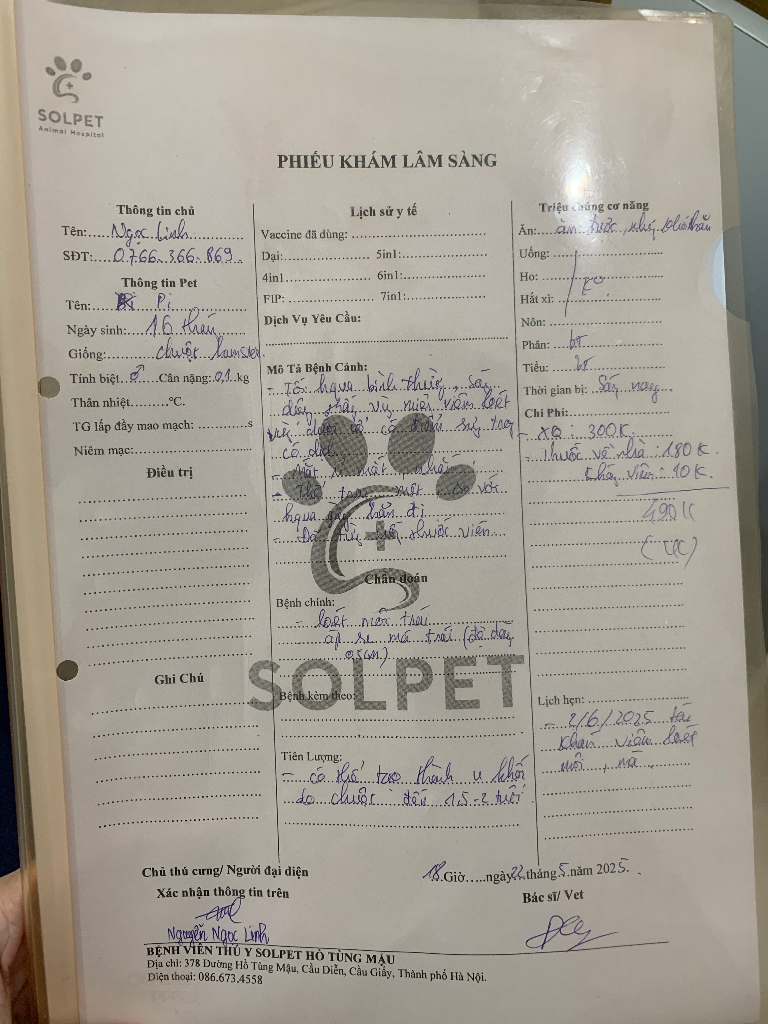 SOLPET
Animal Hospital
PHIẾU KHÁM LÂM SÀNG
Thông tin chủ
Tên: Ngọc Linh
SĐT: 0766.366.869
Thông tin Pet
Tên: Pi
Ngày sinh: 16 tháng
Giống: chuột hamster
Tính biệt: ♂ Cân nặng: 0,1 kg
Thân nhiệt.........°C.
TG lấp đầy mao mạch: ........s
Niêm mạc:
Điều trị
Ghi Chú
Lịch sử y tế
Vaccine đã dùng:
Dại: 5in1:
4in1 6in1:
FIP: 7in1:
Dịch Vụ Yêu Cầu:
Mô Tả Bệnh Cảnh:
- Tối hqua bình thường, sáng
dậy thấy miệng viêm loét
có dịch
hqua hẳn đi
thuốc viên
Chẩn đoán
Bệnh chính:
- loét môi trái
áp xe má trái (độ dày
0,5cm)
SOLPET
Bệnh kèm theo:
Tiên Lượng:
- có thể tạo thành u khối
do chuột đến 1,5-2 tuổi
Triệu chứng cơ năng
Ăn: ăn được, khó khăn
Uống:
Ho:
Hắt xì:
Nôn:
Phân: bt
Tiểu: bt
Thời gian bị: Sáng nay
Chi Phí:
- XQ: 300K
- thuốc về nhà: 180K
Khám viện: 10K
490K
(CK)
Lịch hẹn:
- 2/6/2025 tái
khám viêm loét
môi, má
Chủ thú cưng/ Người đại diện
Xác nhận thông tin trên
Nguyễn Ngọc Linh
18 Giờ.....ngày 22 tháng 5 năm 2025.
Bác sĩ/ Vet
BỆNH VIỆN THÚ Y SOLPET HỒ TÙNG MẬU
Địa chỉ: 378 Đường Hồ Tùng Mậu, Cầu Diễn, Cầu Giấy, Thành phố Hà Nội.
Điện thoại: 086.673.4558